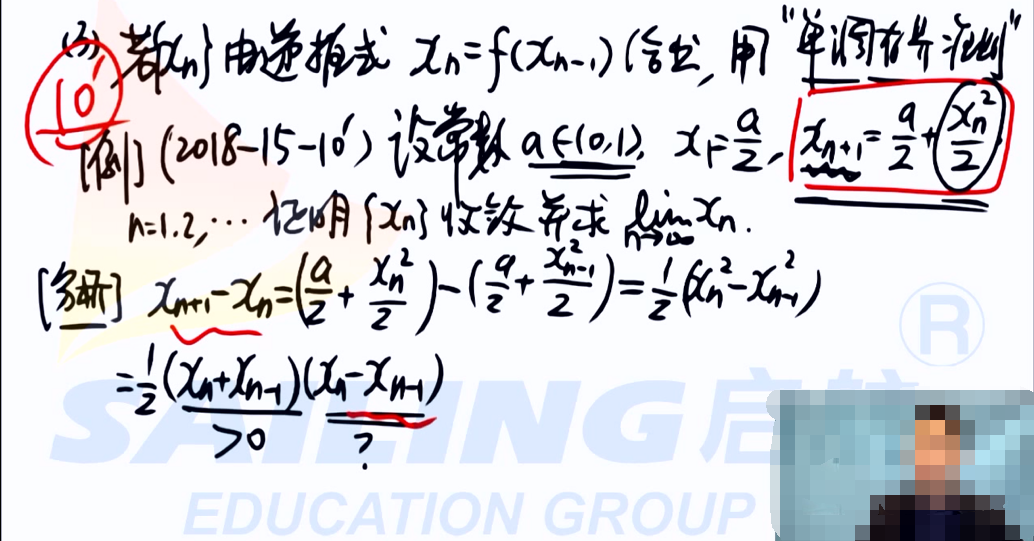 (3) 若{xₙ}由递推式 xₙ=f(xₙ₋₁)给出, 用"单调有界准则"
10'
[例] (2018-15-10') 设常数 a∈(0,1), x₁=a/2, xₙ₊₁=a/2+xₙ²/2
n=1.2,… 证明{xₙ}收敛并求 lim n→∞ xₙ.
[分析] xₙ₊₁-xₙ=(a/2+xₙ²/2)-(a/2+xₙ₋₁²/2)=1/2(xₙ²-xₙ₋₁²)
=1/2(xₙ+xₙ₋₁)(xₙ-xₙ₋₁)
>0 ?
®
SAILING启航
EDUCATION GROUP